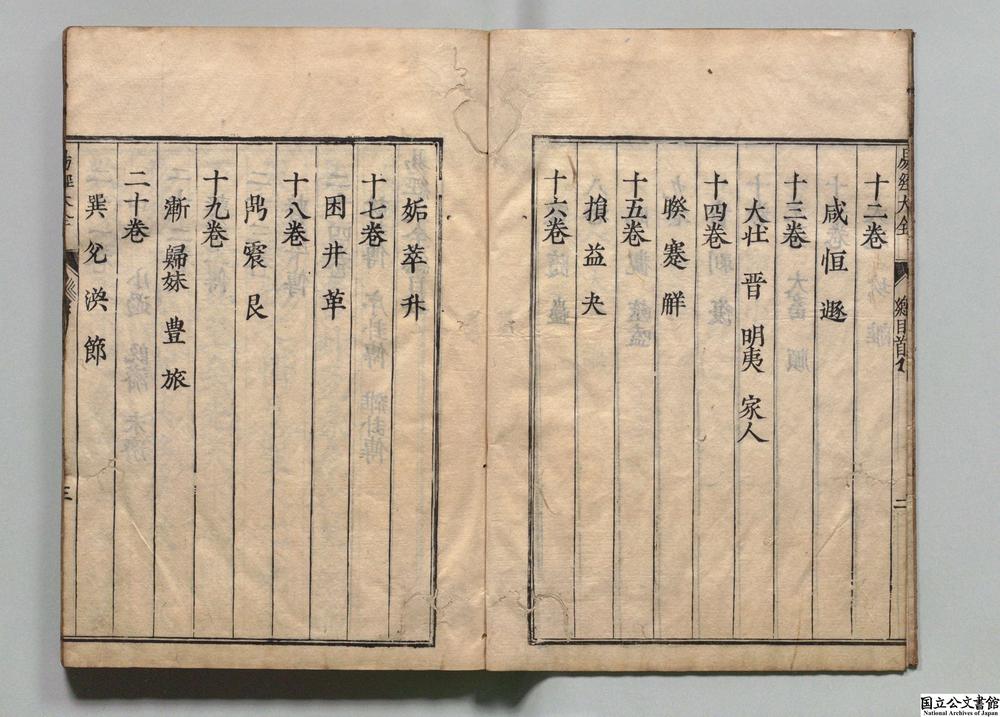 易經大全 總目首卷 二
十二卷
咸 恒 遯
十三卷
大壯 晋 明夷 家人
十四卷
睽 蹇 觧
十五卷
損 益 夬
十六卷
姤 萃 升
十七卷
困 井 革
十八卷
鼎 震 艮
十九卷
漸 歸妹 豊 旅
二十卷
巽 兊 渙 節
三
国立公文書館
National Archives of Japan